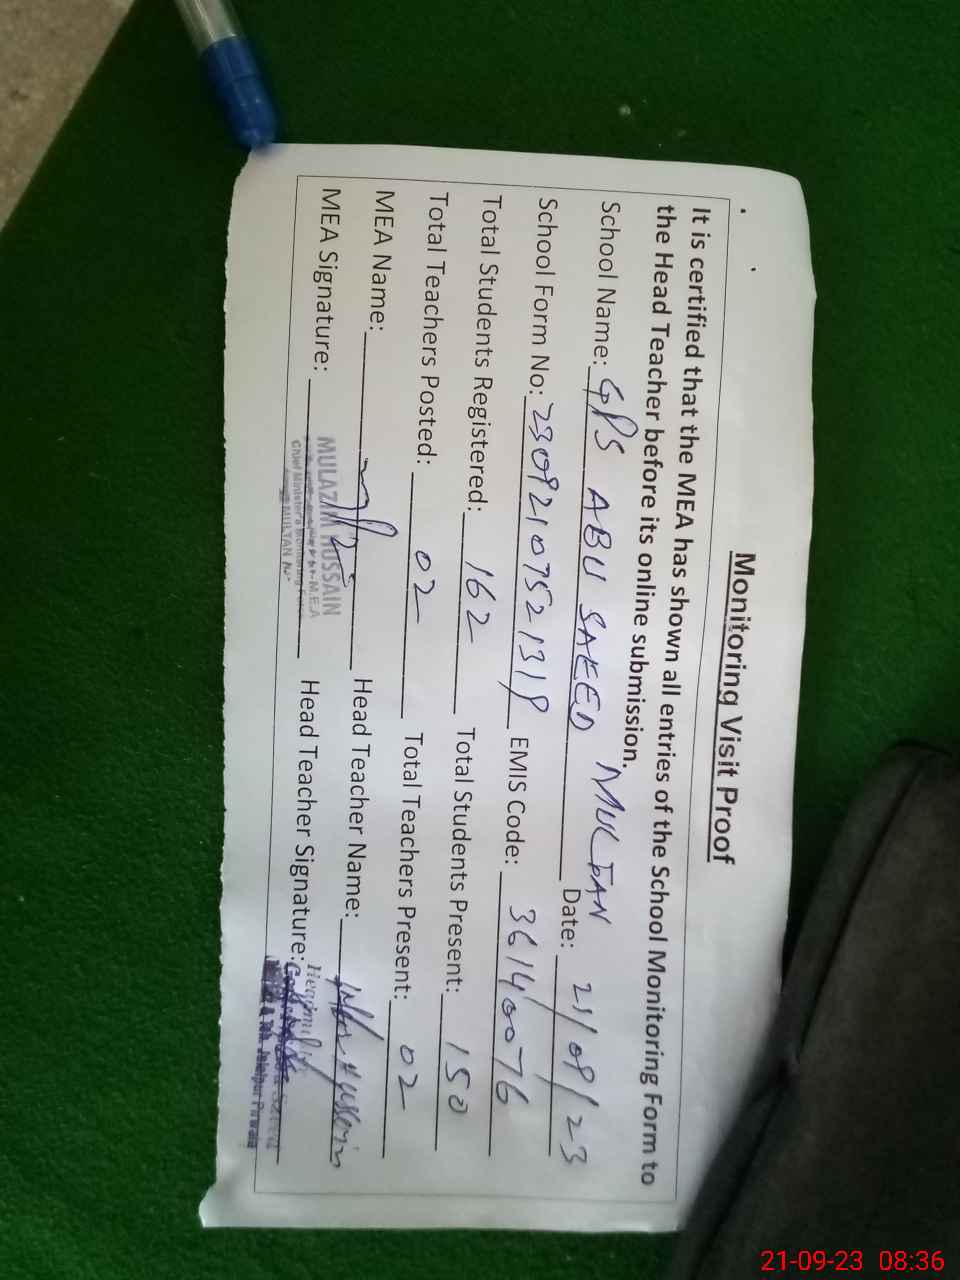 Monitoring Visit Proof
It is certified that the MEA has shown all entries of the School Monitoring Form to
the Head Teacher before its online submission.
School Name: GPS ABU SAEED MULTAN Date: 21/09/23
School Form No: 23092107521319 EMIS Code: 36140076
Total Students Registered: 162 Total Students Present: 150
Total Teachers Posted: 02 Total Teachers Present: 02
MEA Name: Head Teacher Name: Hussain
MEA Signature: Head Teacher Signature:
MULAZIM HUSSAIN
M.E.A
Chief Minister's Monitoring Force
MULTAN
Jalalpur Pirwala
21-09-23 08:36